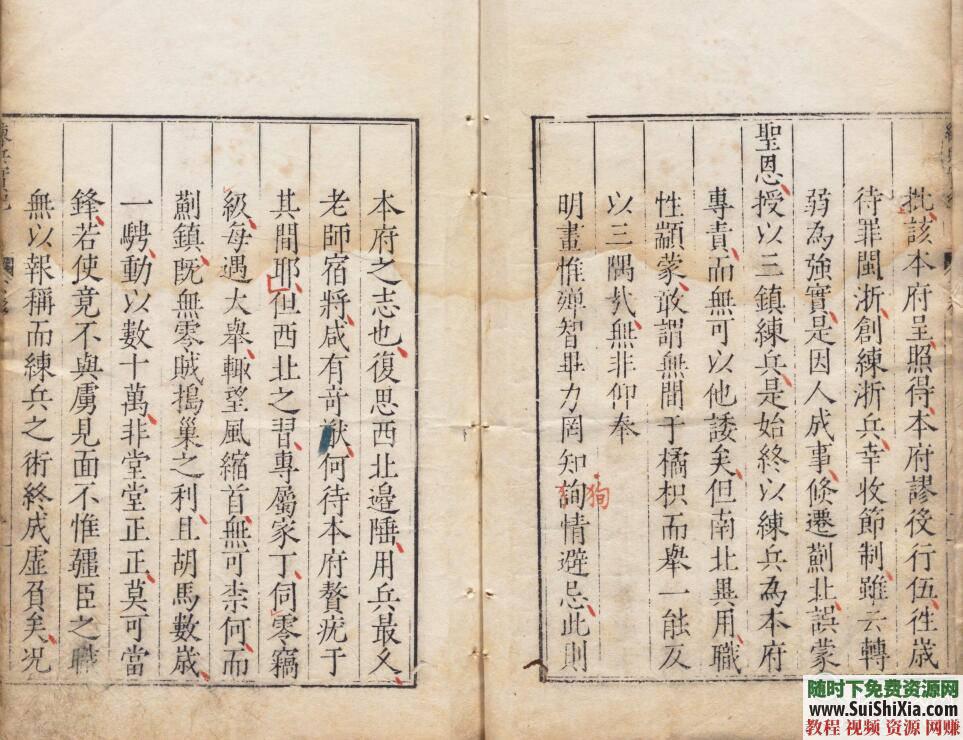 批該本府呈照得本府謬後行伍徃歲
待罪閩浙創練浙兵幸收節制雖云轉
弱為強實是因人成事倏遷薊北誤蒙
聖恩授以三鎮練兵是始終以練兵為本府
專責而無可以他諉矣但南北異用職
性顓蒙敢謂無間于橘枳而舉一能反
以三隅㢤無非仰奉
明畫惟殫智畢力罔知詢情避忌此則
狥
本府之志也復思西北邉陲用兵最乆
老師宿將咸有竒猷何待本府贅疣于
其間耶但西北之習專屬家丁伺零竊
級每遇大舉輙望風縮首無可柰何而
薊鎮旣無零賊搗巢之利且胡馬數歲
一騁動以數十萬非堂堂正正莫可當
鋒若使竟不與虜見面不惟疆臣之職
無以報稱而練兵之術終成虛負矣况
練兵實紀
随时下免费资源网
www.SuiShiXia.com
教程 视频 资源 网赚